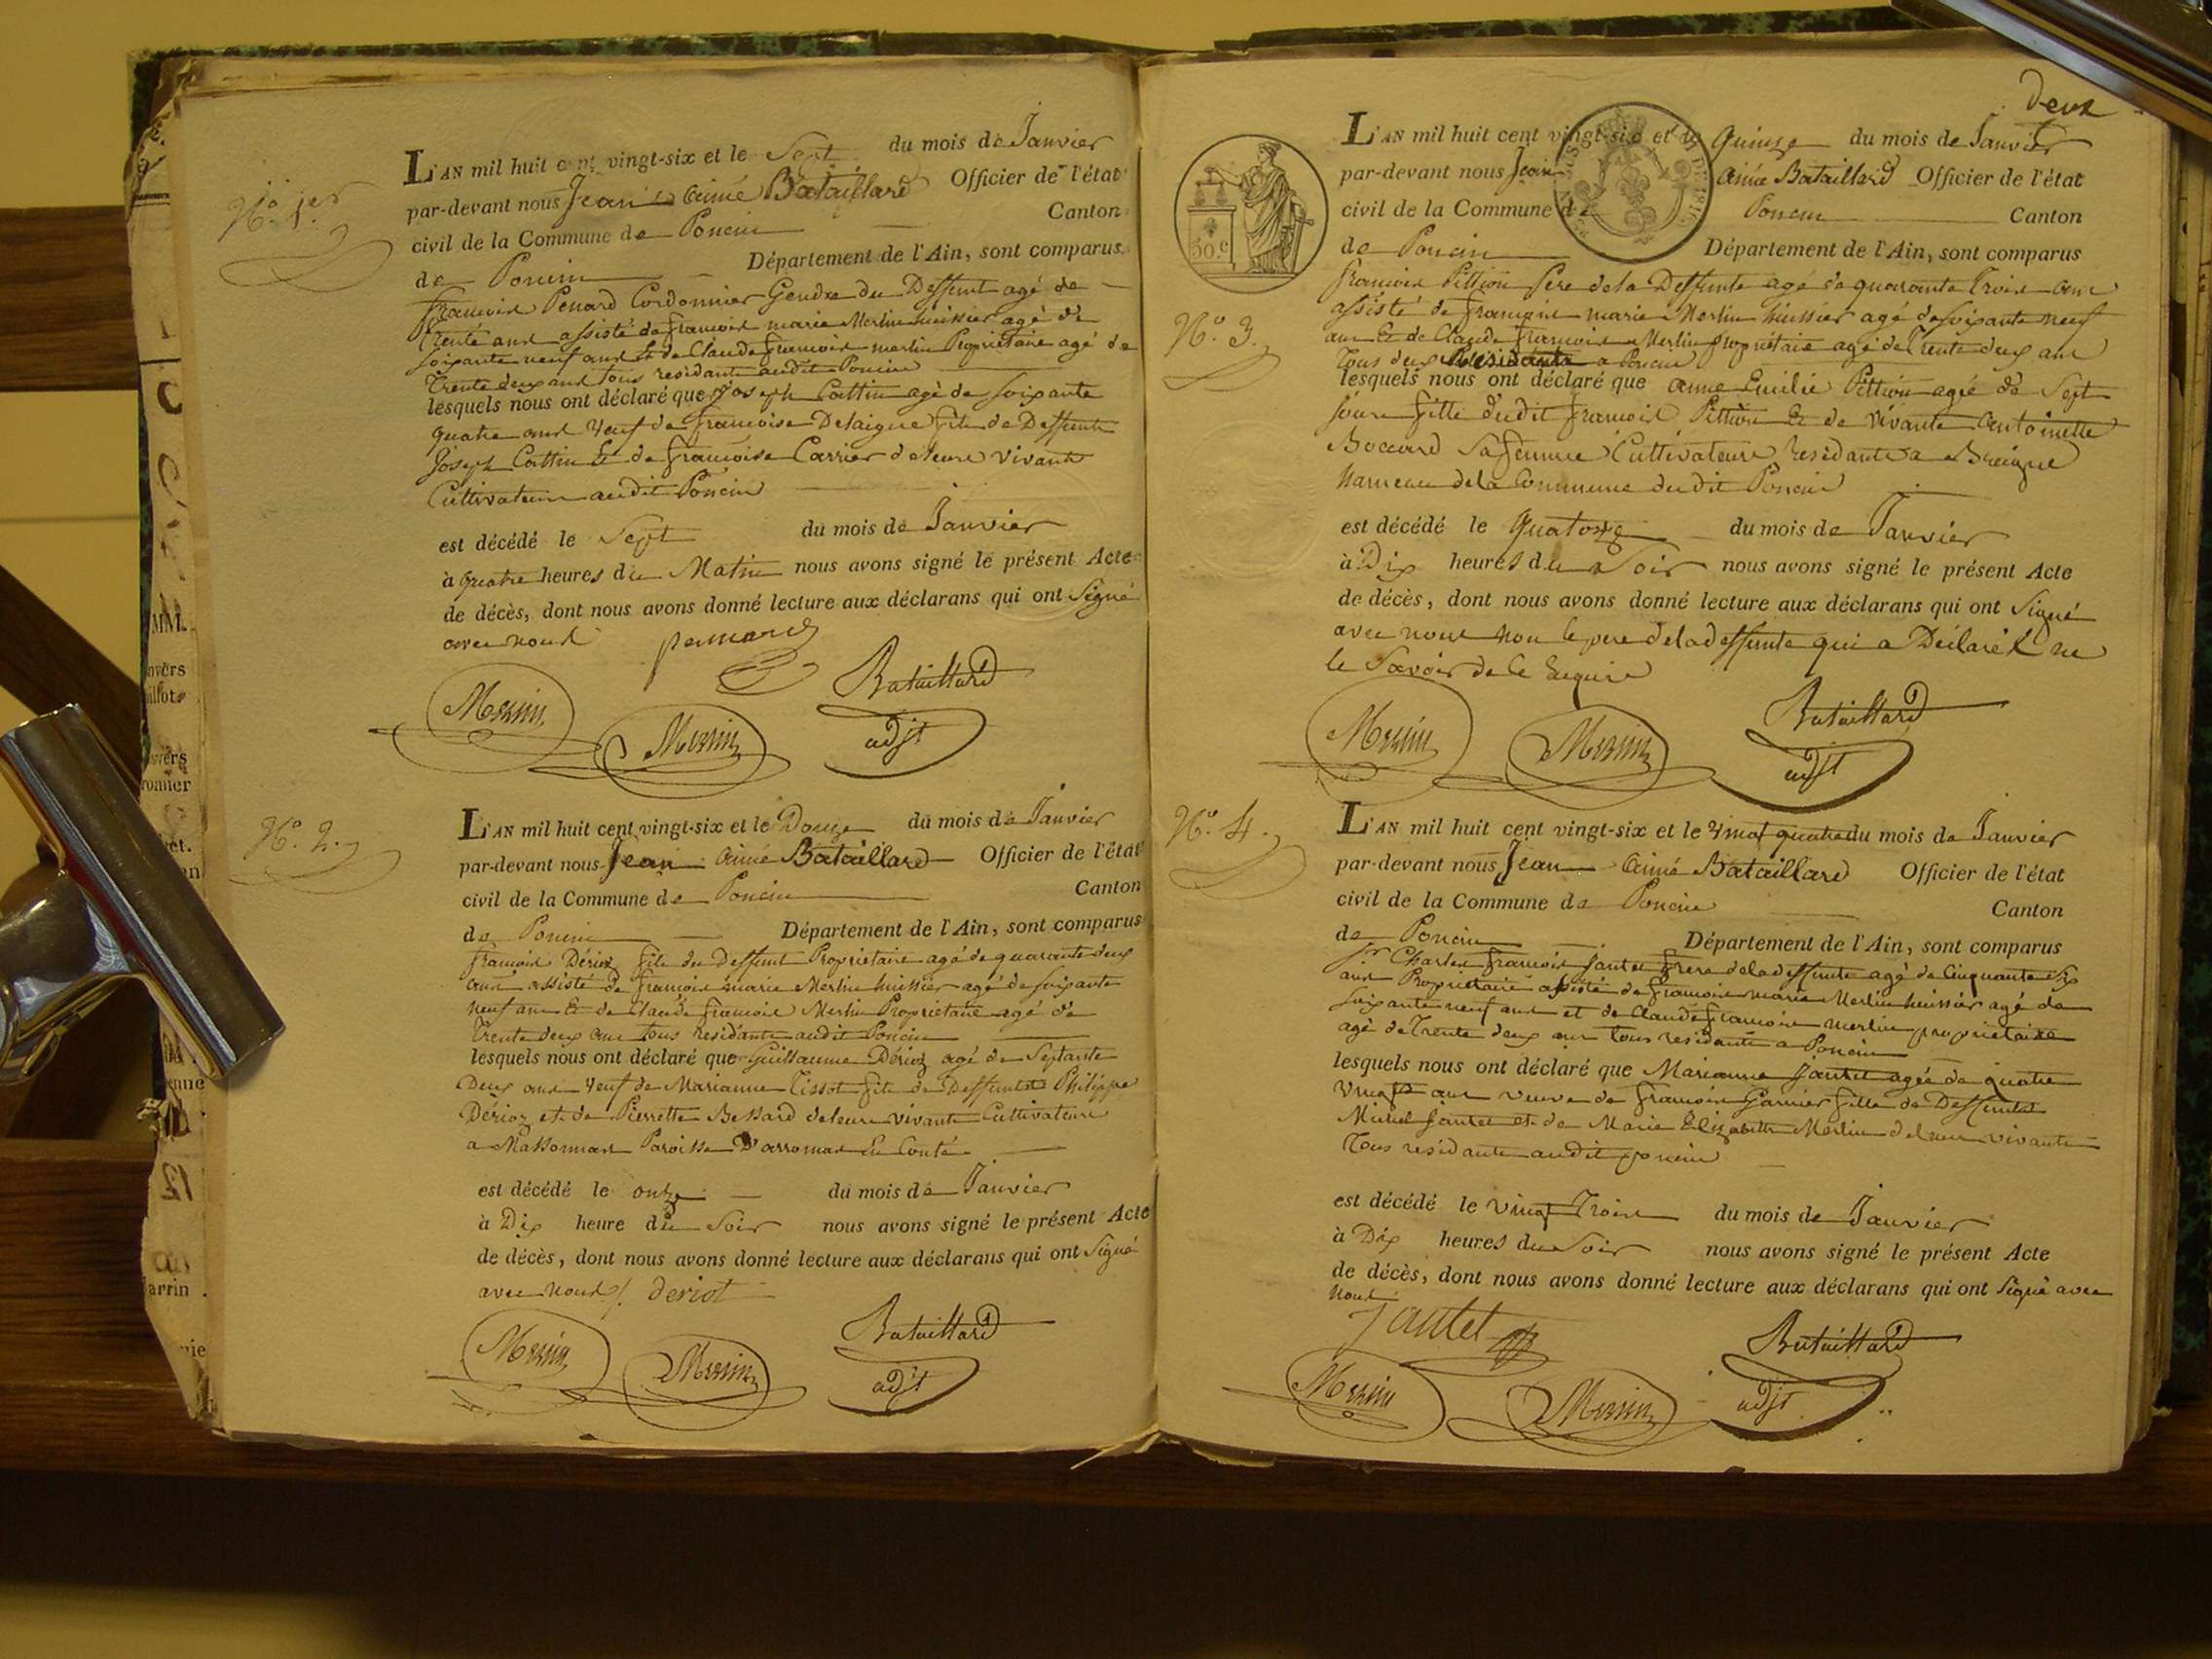 N.o 1.er
L'AN mil huit cent vingt-six et le Sept du mois de Janvier
par-devant nous Jean Aimé Bataillard Officier de l'état
civil de la Commune de Poncin Canton
de Poncin Département de l'Ain, sont comparus
francois Penard Cordonnier Gendre du Deffunt agé de
trente ans assisté de francois marie Merlin huissier agé de
soixante neuf ans Et de Claude francois merlin Propriétaire agé de
Trente deux ans tous residants audit Poncin
lesquels nous ont déclaré que Joseph Cottin agé de soixante
quatre ans Veuf de francoise Delaigue fils de Deffunts
Joseph Cottin Et de francoise Carrier de leurs vivants
Cultivateurs audit Poncin
est décédé le Sept du mois de Janvier
à quatre heures du Matin nous avons signé le présent Acte
de décès, dont nous avons donné lecture aux déclarans qui ont Signé
avec nous
Merlin Merlin Bataillard
adjt
N.o 2.
L'AN mil huit cent vingt-six et le Douze du mois de Janvier
par-devant nous Jean Aimé Bataillard Officier de l'état
civil de la Commune de Poncin Canton
de Poncin Département de l'Ain, sont comparus
francois Dérioz fils du Deffunt Propriétaire agé de quarante deux
ans assisté de francois marie Merlin huissier agé de soixante
neuf ans Et de Claude francois Merlin Propriétaire agé de
Trente deux ans tous residants audit Poncin
lesquels nous ont déclaré que Guillaume Dérioz agé de Septante
Deux ans Veuf de Marianne Tissot fils de Deffunts Philippe
Dérioz et de Pierrette Bessard de leurs vivants Cultivateurs
a Massonnas Paroisse D'arromas En Conté
est décédé le onze du mois de Janvier
à Dix heure du Soir nous avons signé le présent Acte
de décès, dont nous avons donné lecture aux déclarans qui ont Signé
avec nous deriot
Merlin Merlin Bataillard
adjt
deux
50 c
N.o 3.
L'AN mil huit cent vingt-six et le Quinze du mois de Janvier
par-devant nous Jean Aimé Bataillard Officier de l'état
civil de la Commune de Poncin Canton
de Poncin Département de l'Ain, sont comparus
francois Pittion Pere de la Deffunte agé de quarante Trois ans
assisté de francois marie Merlin huissier agé de soixante neuf
ans Et de Claude francois Merlin propriétaire agé de Trente deux ans
Tous deux Residants a Poncin
lesquels nous ont déclaré que anne Emilie Pittion agée de Sept
jours fille dudit francois Pittion Et de vivante Antoinette
Boccard Sa femme Cultivateurs residants a Breigne
hameau de la Commune dudit Poncin
est décédé le Quatorze du mois de Janvier
à Dix heures du Soir nous avons signé le présent Acte
de décès, dont nous avons donné lecture aux déclarans qui ont Signé
avec nous non le pere de la deffunte qui a Déclaré ne
le Savoir de ce Requis
Merlin Merlin Bataillard
adjt
N.o 4.
L'AN mil huit cent vingt-six et le vingt quatre du mois de Janvier
par-devant nous Jean Aimé Bataillard Officier de l'état
civil de la Commune de Poncin Canton
de Poncin Département de l'Ain, sont comparus
Sr Charles francois Jantet frere de la deffunte agé de Cinquante six
ans Propriétaire assisté de francois marie Merlin huissier agé de
soixante neuf ans et de Claude francois merlin propriétaire
agé de Trente deux ans tous residants a Poncin
lesquels nous ont déclaré que Marianne Jantet agée de quatre
vingts ans veuve de francois Garnier fille de Deffunts
Michel Jantet et de Marie Elizabeth Merlin de leur vivants
Tous residants audit poncin
est décédé le vingt Trois du mois de Janvier
à Dix heures du Soir nous avons signé le présent Acte
de décès, dont nous avons donné lecture aux déclarans qui ont Signé avec
nous
Jantet Bataillard
Merlin Merlin adjt